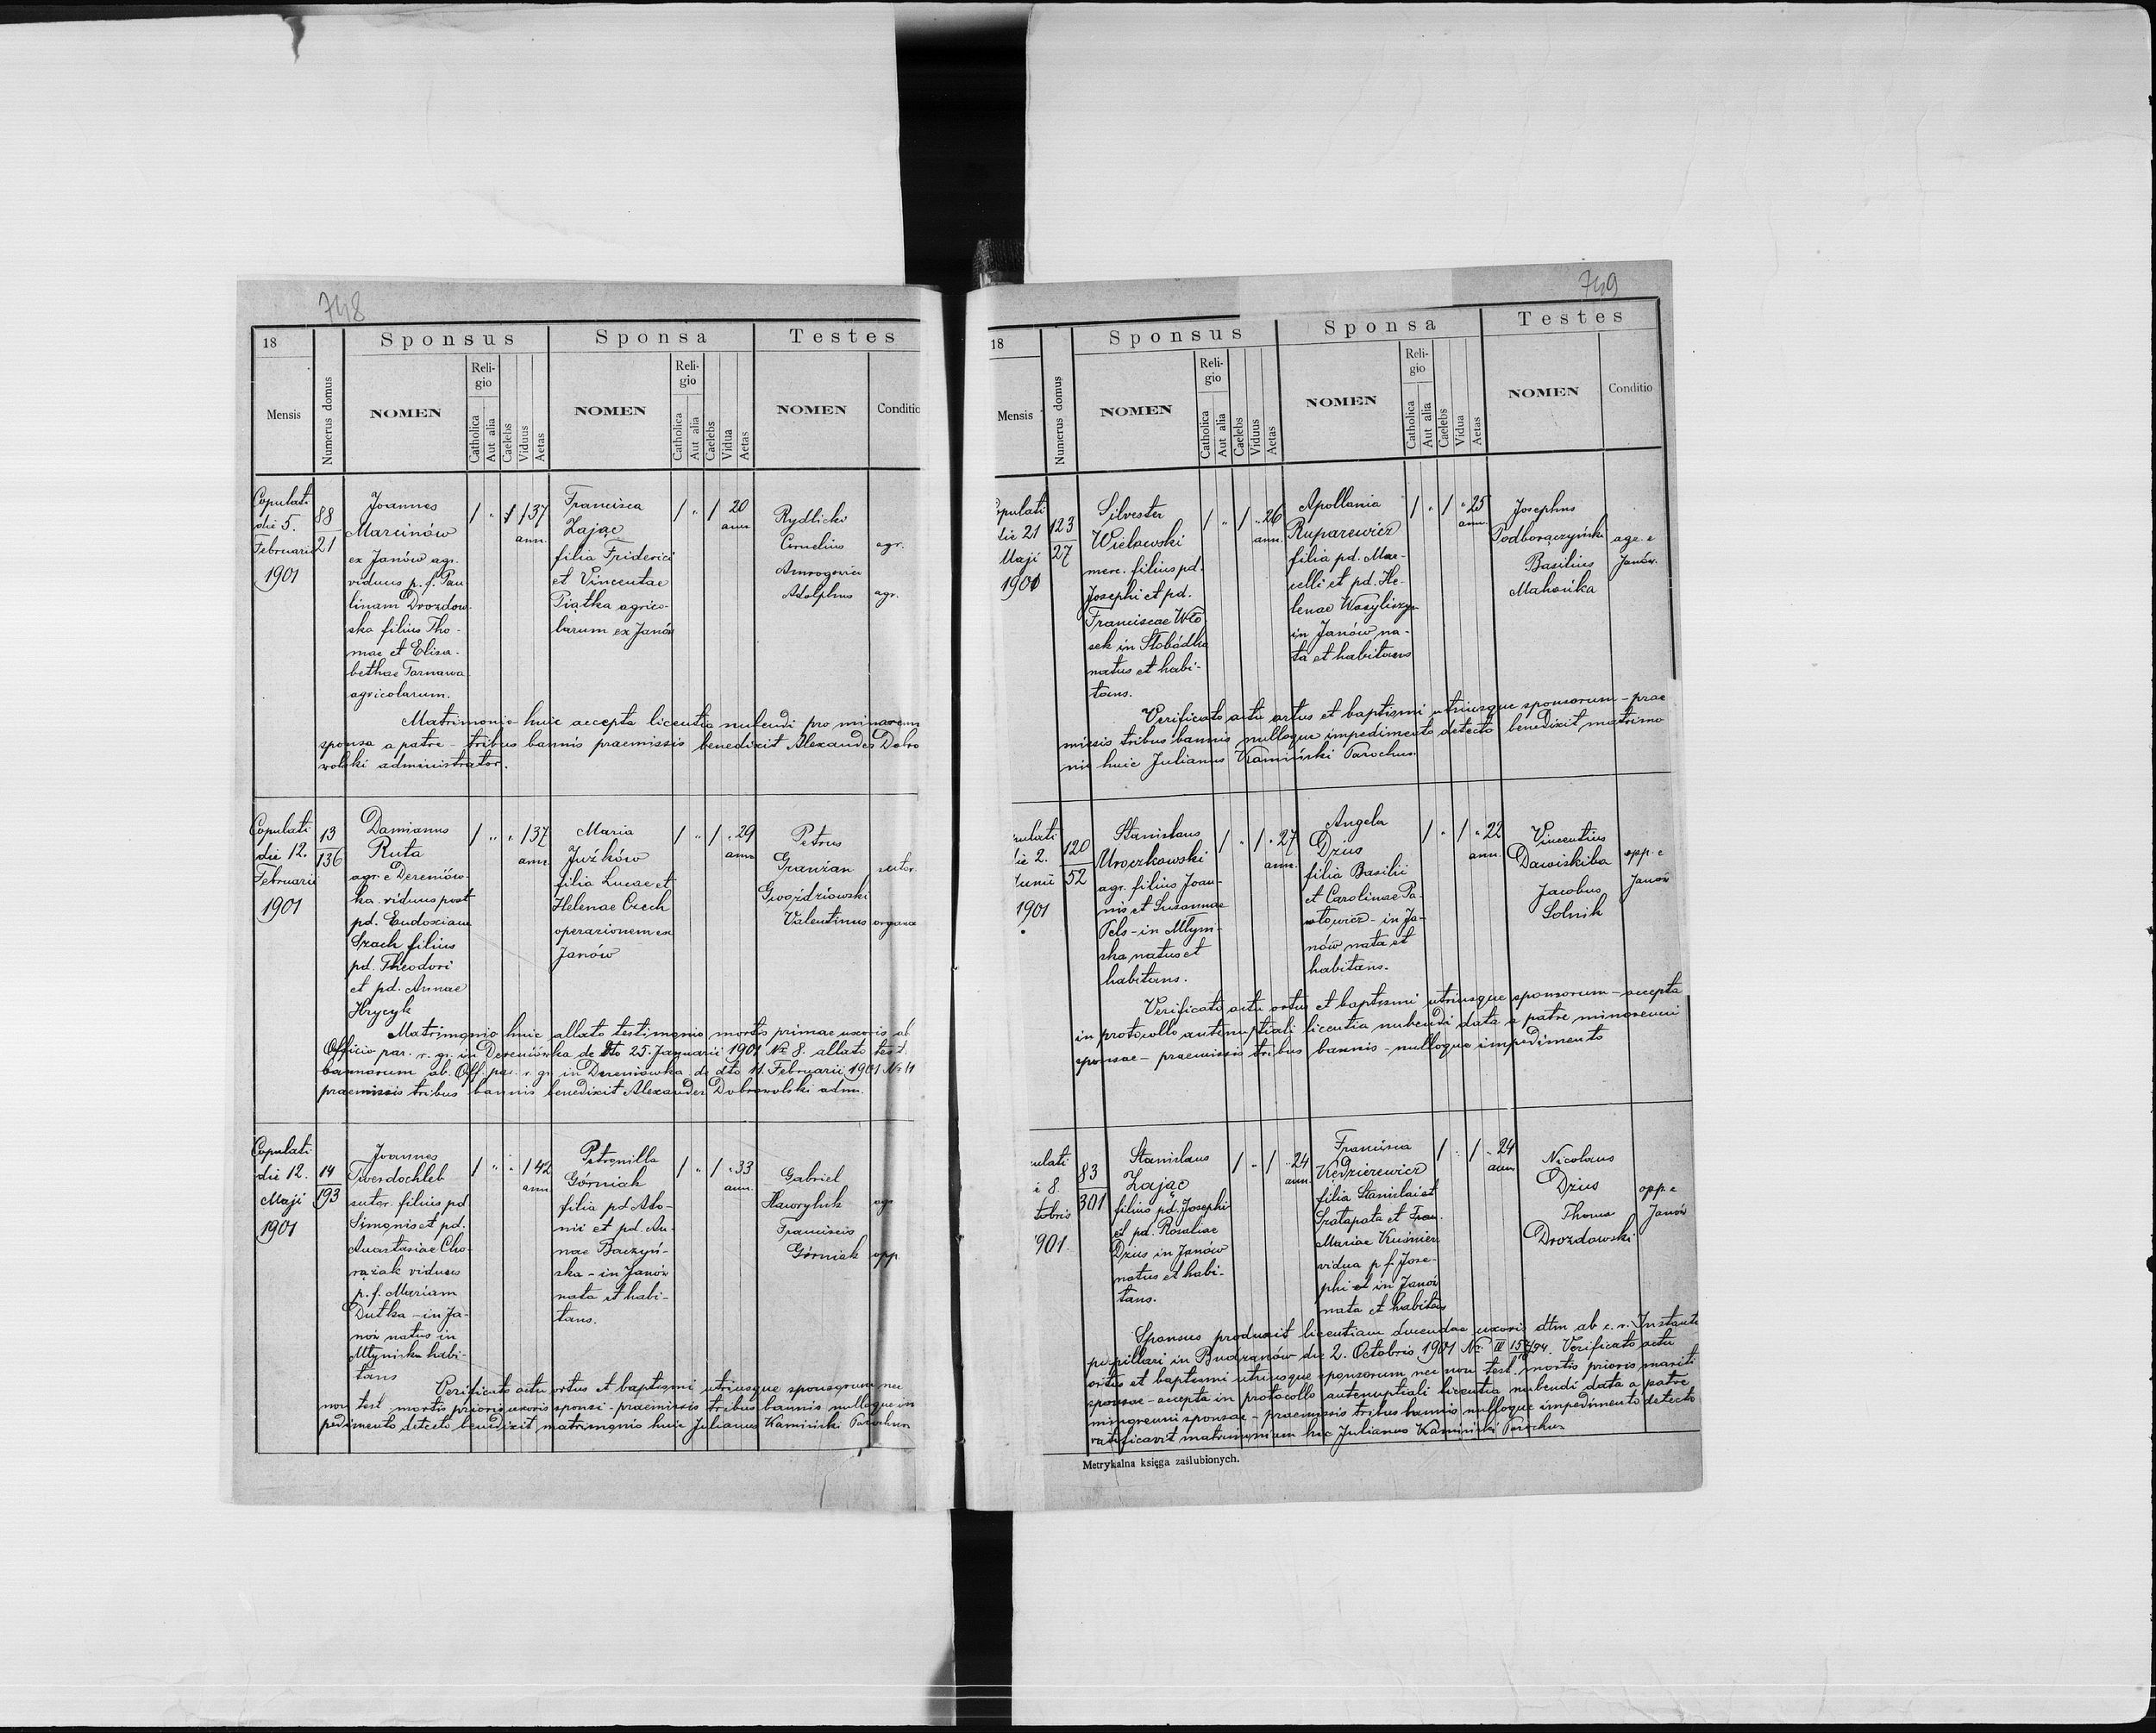 748
18
Mensis
Numerus domus
Sponsus
NOMEN
Religio
Catholica
Aut alia
Caelebs
Viduus
Aetas
Sponsa
NOMEN
Religio
Catholica
Aut alia
Caelebs
Vidua
Aetas
Testes
NOMEN
Conditio
Copulati
die 5.
Februarii
1901
88
21
Joannes
Marcinów
ex Janów agr.
viduus p. f. Pau
linam Drozdow
ska filius Tho-
mae et Elisa-
bethae Tarnawa
agricolarum.
1 " 1 1 37
ann.
Francisca
Zając
filia Friderici
et Vincentae
Piątka agrico-
larum ex Janów
1 " 1 20
ann.
Rydlicki
Cornelius agr.
Adolphus agr.
Matrimonio huic accepta licentia nubendi pro minorenn
sponsa a patre - tribus bannis praemissis benedixit Alexander Dobro
wolski administrator.
Copulati
die 12.
Februarii
1901
13
136
Damianus
Ruta
agr. e Dereniów-
ka viduus post
pd. Eudoxiam
Szach filius
pd. Theodori
et pd. Annae
Hrycyk
1 " " 1 37
ann.
Maria
Juźków
filia Lucae et
Helenae Czech
operarionem ex
Janów
1 " 1 " 29
ann.
Petrus
Granżan sutor
Gwoździowski
Valentinus
Matrimonio huic allato testimonio mortis primae uxoris ab
Officio par. r. gr. in Dereniówka de dto 25. Januarii 1901 No 8. allato test.
bannorum ab. Off. par. r. gr. in Dereniówka de dto 11. Februarii 1901 No 11
praemissis tribus bannis benedixit Alexander Dobrowolski adm.
Copulati
die 12.
Maji
1901
14
193
Joannes
Twerdochleb
sutor. filius pd
Simonis et pd.
Anastasiae Cho-
rążak viduus
p. f. Mariam
Dutka - in Ja-
nów natus in
Młyniska habi-
tans
1 " " 1 42
ann.
Petronilla
Górniak
filia pd Ato-
nii et pd. An-
nae Baczyń-
ska - in Janów
nata et habi-
tans.
1 " 1 " 33
ann.
Gabriel
Hawryluk agr
Franciscus
Górniak opp.
Verificato actu ortus et baptismi utriusque sponsorum nec
non test mortis prioris uxoris sponsi - praemissis tribus bannis nulloque im
pedimento detecto benedixit matrimonio huic Julianus Kamiński Parochus
749
18
Mensis
Numerus domus
Sponsus
NOMEN
Religio
Catholica
Aut alia
Caelebs
Viduus
Aetas
Sponsa
NOMEN
Religio
Catholica
Aut alia
Caelebs
Vidua
Aetas
Testes
NOMEN
Conditio
opulati
die 21
Maji
1901
123
27
Silvester
Wielowski
merc. filius pd.
Josephi et pd.
Franciscae Wło
sek in Słobódka
natus et habi-
tans.
1 " 1 " 26
ann.
Apollonia
Ruparewicz
filia pd. Mar-
celli et pd. He-
lenae Wasyliszyn
in Janów na-
ta et habitans
1 " 1 " 25
ann.
Josephus
Podborączyński agr. e
Basilius Janów.
Mahońka
Verificato actu ortus et baptismi utriusque sponsorum - prae
missis tribus bannis nulloque impedimento detecto benedixit matrimo
nio huic Julianus Kamiński Parochus.
pulati
die 2.
Junii
1901
120
52
Stanislaus
Mroczkowski
agr. filius Joan-
nis et Susannae
Pels - in Młyni-
ska natus et
habitans.
1 " 1 " 27
ann.
Angela
Dzius
filia Basilii
et Carolinae Pa-
włowicz - in Ja-
nów nata et
habitans.
1 " 1 " 22
ann.
Vincentius
Dawiskiba opp. e
Jacobus Janów
Solnik
Verificato actu ortus et baptismi utriusque sponsorum - accepta
in protocollo antenuptiali licentia nubendi data a patre minorenni
sponsae - praemissis tribus bannis - nulloque impedimento
ulati
e 8.
tobris
901.
83
301
Stanislaus
Zając
filius pd. Josephi
et pd. Rosaliae
Dzius in Janów
natus et habi-
tans.
1 " 1 " 24
ann.
Francisca
Kędzierewicz
filia Stanislai et
Mariae Kuśnierz
vidua p f Jose-
phi et in Janów
nata et habitans
1 " 1 " 24
ann.
Nicolaus
Dzius opp. e
Thomas Janów
Drozdowski
Sponsus produxit licentiam ducendae uxoris dtm ab c. r. Instantia
pupillari in Budzanów die 2. Octobris 1901 Verificato actu
ortus et baptismi utriusque sponsorum nec non test. mortis prioris mariti
sponsae - accepta in protocollo antenuptiali licentia nubendi data a patre
minorenni sponsae - praemissis tribus bannis nulloque impedimento detecto
ratificavit matrimonium hoc Julianus Kamiński Parochus
Metrykalna księga zaślubionych.